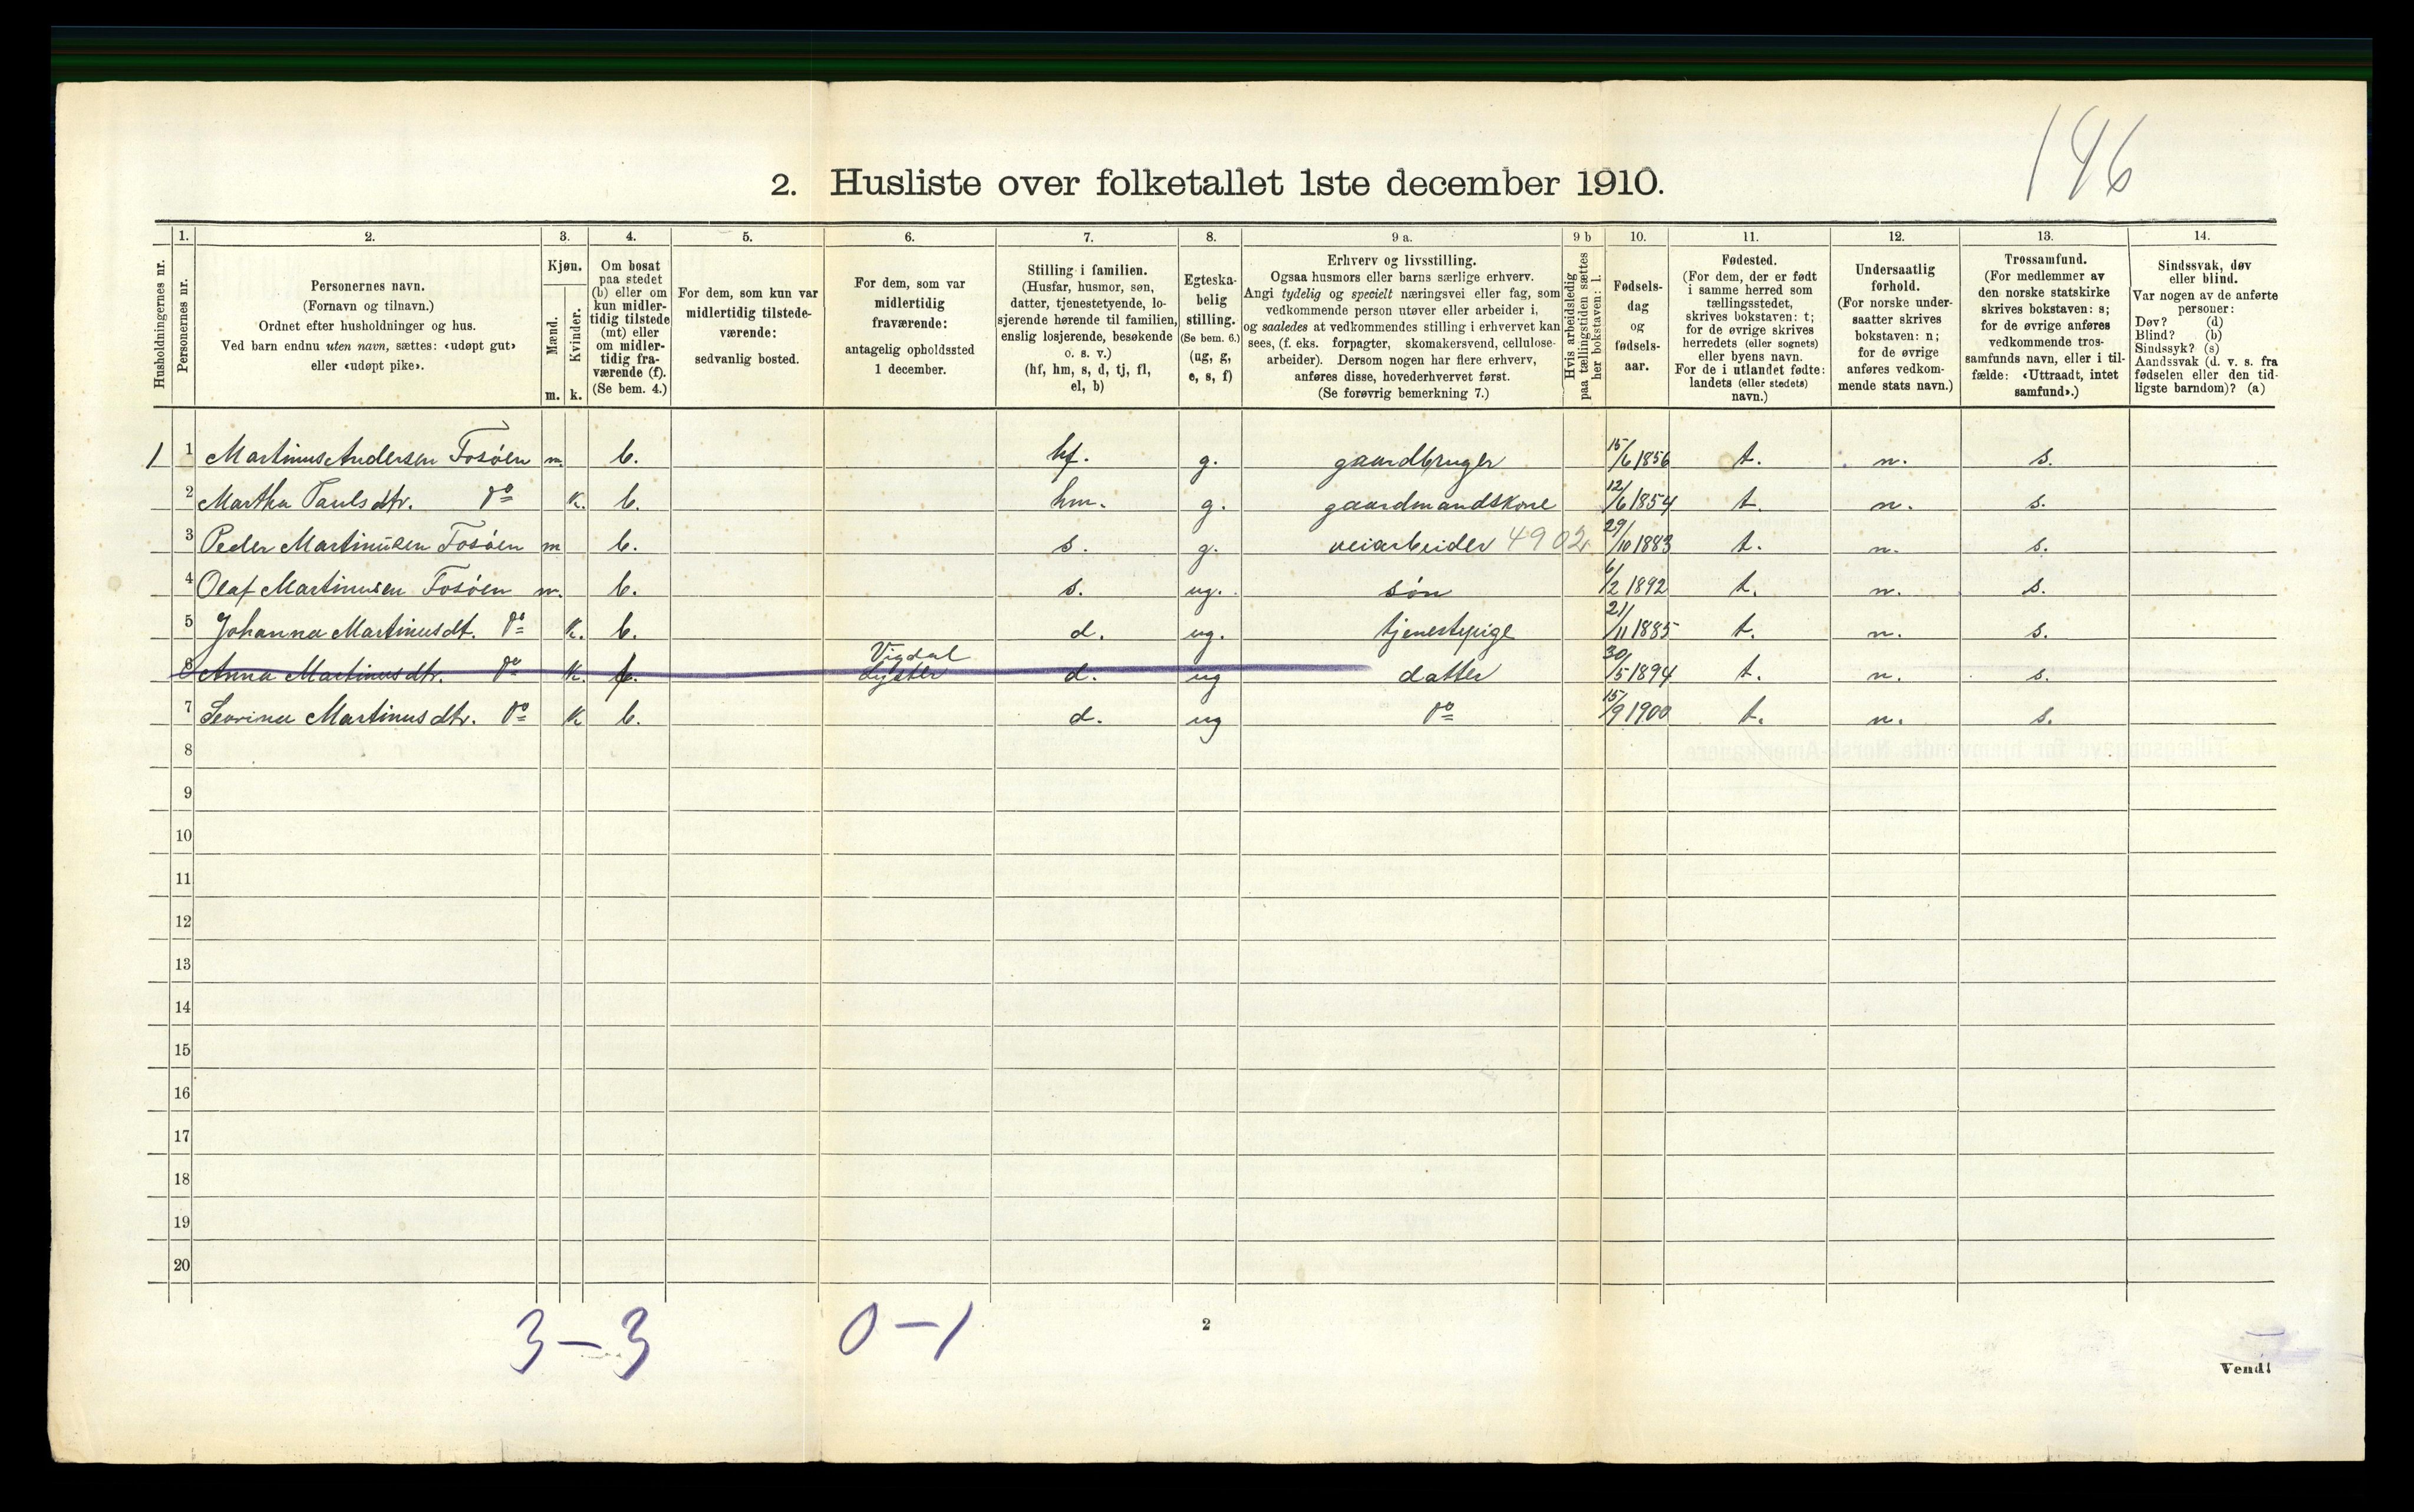 196
2. Husliste over folketallet 1ste december 1910.
Husholdningernes nr.
1. Personernes nr.
2. Personernes navn.
(Fornavn og tilnavn.)
Ordnet efter husholdninger og hus.
Ved barn endnu uten navn, sættes: «udøpt gut»
eller «udøpt pike».
3. Kjøn.
Mænd. Kvinder.
m. k.
4. Om bosat
paa stedet
(b) eller om
kun midler-
tidig tilstede
(mt) eller
om midler-
tidig fra-
værende (f).
(Se bem. 4.)
5. For dem, som kun var
midlertidig tilstede-
værende:
sedvanlig bosted.
6. For dem, som var
midlertidig
fraværende:
antagelig opholdssted
1 december.
7. Stilling i familien.
(Husfar, husmor, søn,
datter, tjenestetyende, lo-
sjerende hørende til familien,
enslig losjerende, besøkende
o. s. v.)
(hf, hm, s, d, tj, fl,
el, b)
8. Egteska-
belig
stilling.
(Se bem. 6.)
(ug, g,
e, s, f)
9 a. Erhverv og livsstilling.
Ogsaa husmors eller barns særlige erhverv.
Angi tydelig og specielt næringsvei eller fag, som
vedkommende person utøver eller arbeider i,
og saaledes at vedkommendes stilling i erhvervet kan
sees, (f. eks. forpagter, skomakersvend, cellulose-
arbeider). Dersom nogen har flere erhverv,
anføres disse, hovederhvervet først.
(Se forøvrig bemerkning 7.)
9 b Hvis arbeidsledig
paa tællingstiden sættes
her bokstaven: l.
10. Fødsels-
dag
og
fødsels-
aar.
11. Fødested.
(For dem, der er født
i samme herred som
tællingsstedet,
skrives bokstaven: t;
for de øvrige skrives
herredets (eller sognets)
eller byens navn.
For de i utlandet fødte:
landets (eller stedets)
navn.)
12. Undersaatlig
forhold.
(For norske under-
saatter skrives
bokstaven: n;
for de øvrige
anføres vedkom-
mende stats navn.)
13. Trossamfund.
(For medlemmer av
den norske statskirke
skrives bokstaven: s;
for de øvrige anføres
vedkommende tros-
samfunds navn, eller i til-
fælde: «Uttraadt, intet
samfund».)
14. Sindssvak, døv
eller blind.
Var nogen av de anførte
personer:
Døv? (d)
Blind? (b)
Sindssyk? (s)
Aandssvak (d. v. s. fra
fødselen eller den tid-
ligste barndom)? (a)
1 1 Martinus Andersen Fosøen m. b. hf. g. gaardbruger 15/6 1856 t. n. s.
2 Martha Paulsdtr. do k. b. hm. g. gaardmandskone 12/6 1854 t. n. s.
3 Peder Martinusen Fosøen m b. s. g. veiarbeider 4902 29/10 1883 t. n. s.
4 Olaf Martinusen Fosøen m. b. s. ug. søn 6/2 1892 t. n. s.
5 Johanna Martinusdt. do k. b. d. ug. tjenestepige 21/11 1885 t. n. s.
6 Anna Martinusdtr. do k. f. Vigdal Lyster d. ug datter 30/5 1894 t. n. s.
7 Severina Martinusdtr. do k b. d. ug do 15/9 1900 t. n. s.
8
9
10
11
12
13
14
15
16
17
18
19
20
3 — 3 0 — 1
2
Vend!